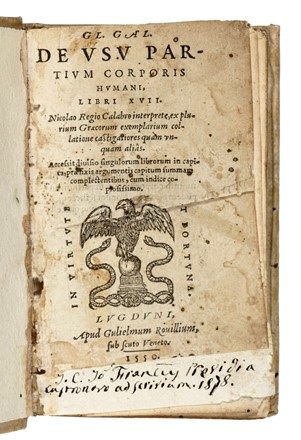 GL. GAL.
DE VSV PAR-
TIVM CORPORIS
HVMANI,
LIBRI XVII.
Nicolao Regio Calabro interprete, ex plu
rium Græcorum exemplarium col
latione castigatiores quàm vn-
quam aliàs.
Accessit diuisio singulorum librorum in capi
ta, præfixis argumentis capitum summam
complectentibus, cum indice co-
piosissimo.
IN VIRTVTE
ET FORTVNA.
LVGDVNI,
Apud Gulielmum Rouillium,
sub scuto Veneto.
1550.
J. C. Jo
1878.